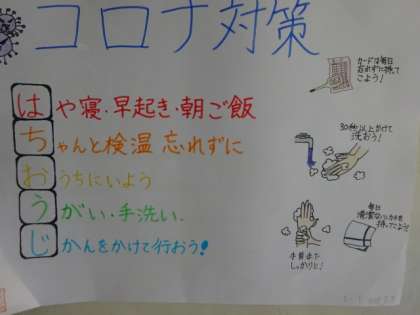 コロナ対策
はや寝・早起き・朝ご飯
ちゃんと検温 忘れずに
おうちにいよう
うがい・手洗い.
じかんをかけて行おう!
カードは毎日
忘れずに持って
こよう!
30秒以上かけて
洗おう!
手首まで
しっかりと!
毎日
清潔なハンカチを
持ってこよう!